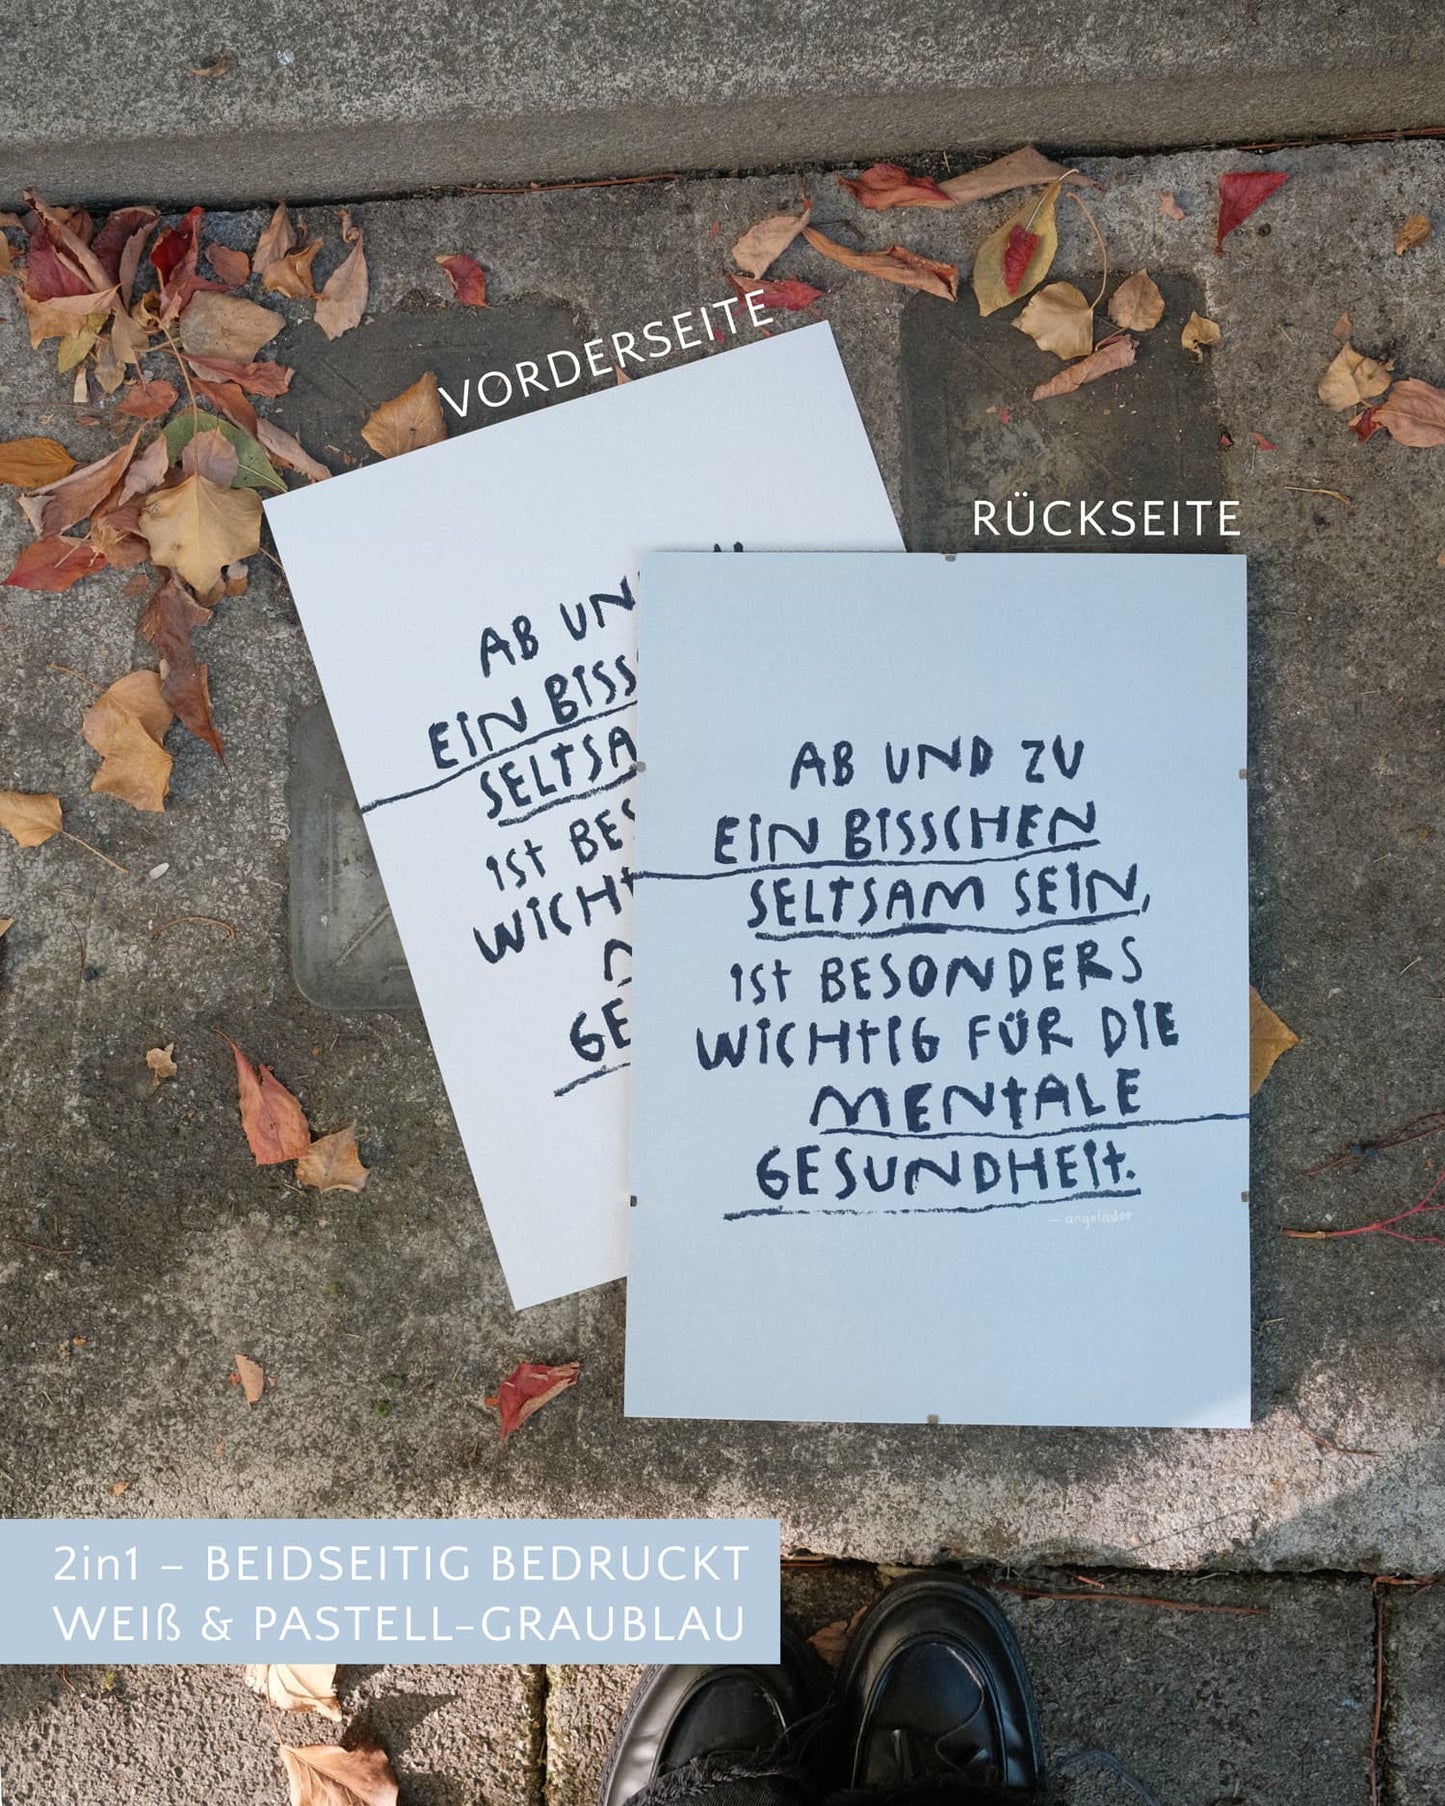 VORDERSEITE
AB UN
EIN BISS
SELTSA
IST BES
WICHT
GE
RÜCKSEITE
AB UND ZU
EIN BISSCHEN
SELTSAM SEIN,
IST BESONDERS
WICHTIG FÜR DIE
MENTALE
GESUNDHEIT.
— angeladoe
2in1 – BEIDSEITIG BEDRUCKT
WEIß & PASTELL-GRAUBLAU